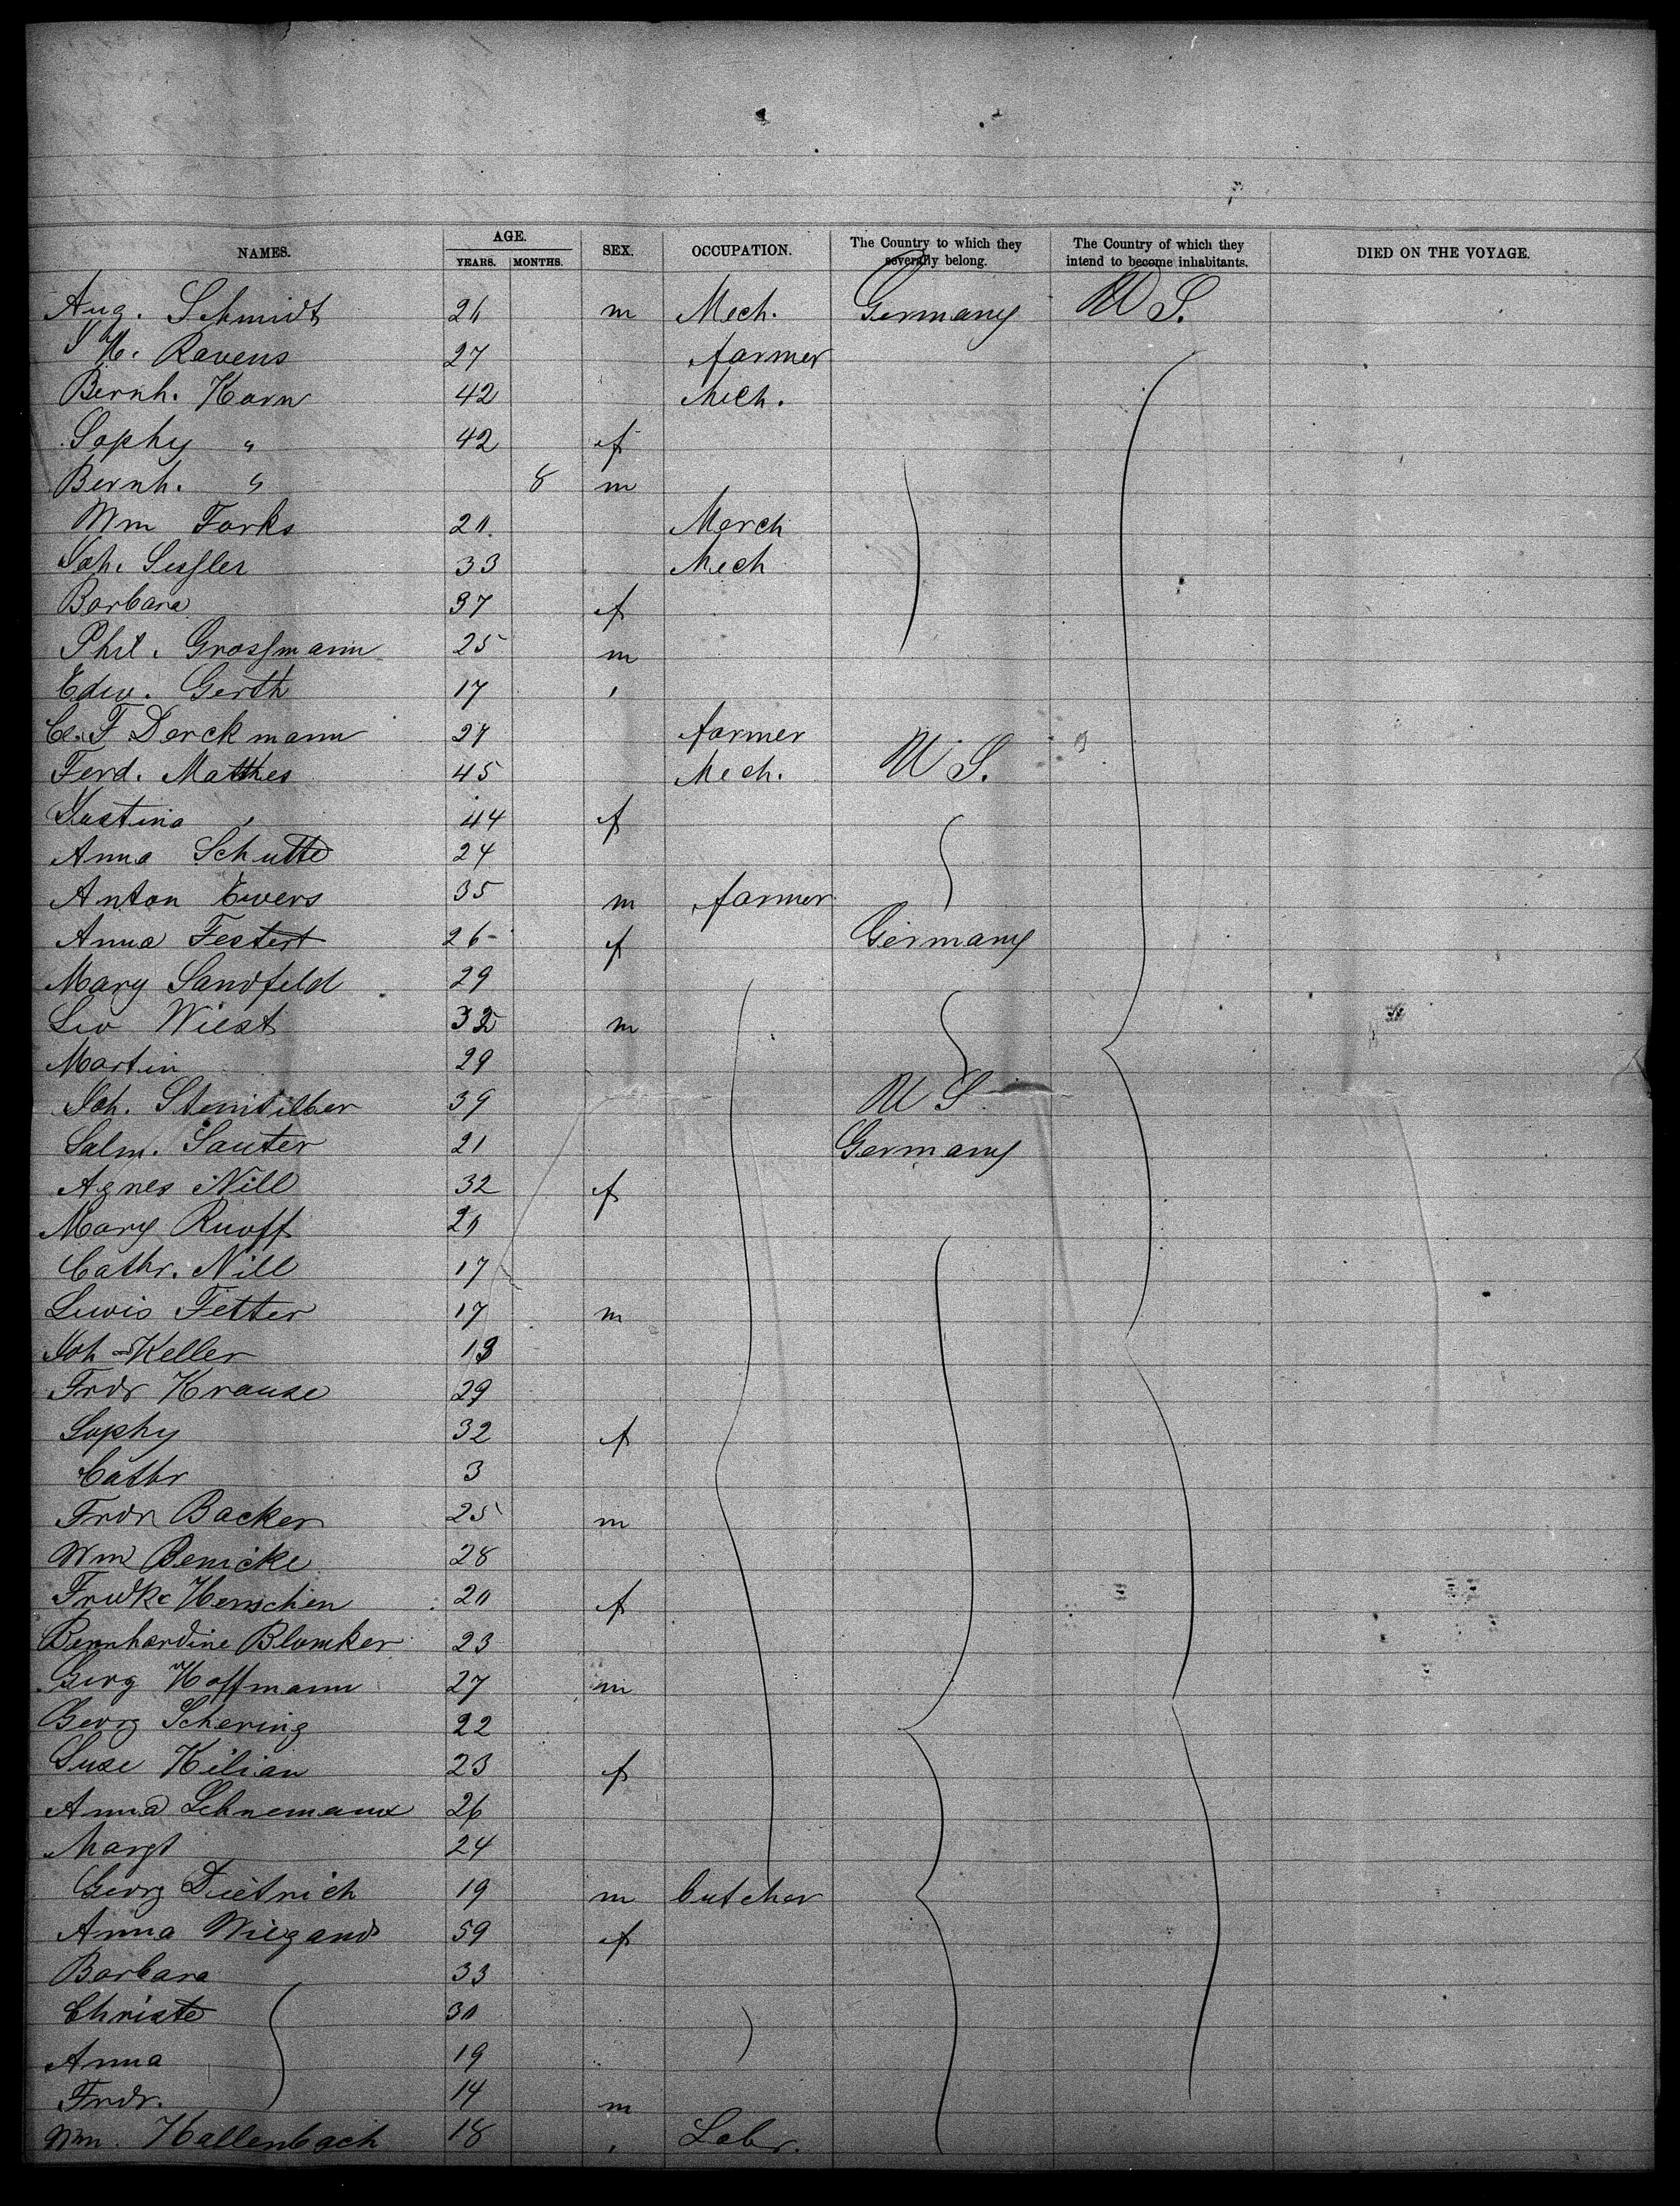 NAMES. AGE. YEARS. MONTHS. SEX. OCCUPATION. The Country to which they severally belong. The Country of which they intend to become inhabitants. DIED ON THE VOYAGE.
Aug. Schmidt m Mech. Germany U S.
H. Ravens 27 farmer
Bernh. Korn 42 Mech.
Sophy " 42 f
Bernh. " 8 m
Wm Forks Merch
Joh. 33 Mech
Barbara 37 f
Phil. Grossmann 25 m
Edw. Gerth 17 ,
F Derckmann 27 farmer
Ferd. Matthes 45 Mech. U S.
Justina , 44 f
Anna Schutte 24
Anton Ewers 35 m farmer
Anna Festert 26 f Germany
Mary Sandfeld 29
Leo Wiest m
Martin 29
Joh. 39 U S
Salm. Sauter 21 Germany
Agnes Nill 32 f
Mary Ruoff
Cathr. Nill 17
Lewis Fetter 17 m
Joh Keller
Frdr Krause 29
Sophy 32 f
Cathr 3
Frdr Backer 25 m
Wm Benicke 28
Frdke Henschen f
Bernhardine Blomker 23
Georg Hoffmann 27 m
Georg Schering 22
Suse Kilian 23 f
Anna 26
Margt 24
Georg Dietrich 19 m butcher
Anna Wiegand 59 f
Barbara 33
Christe
Anna 19
Frdr. 14 m
Wm. Hallenbach 18 , Labr.